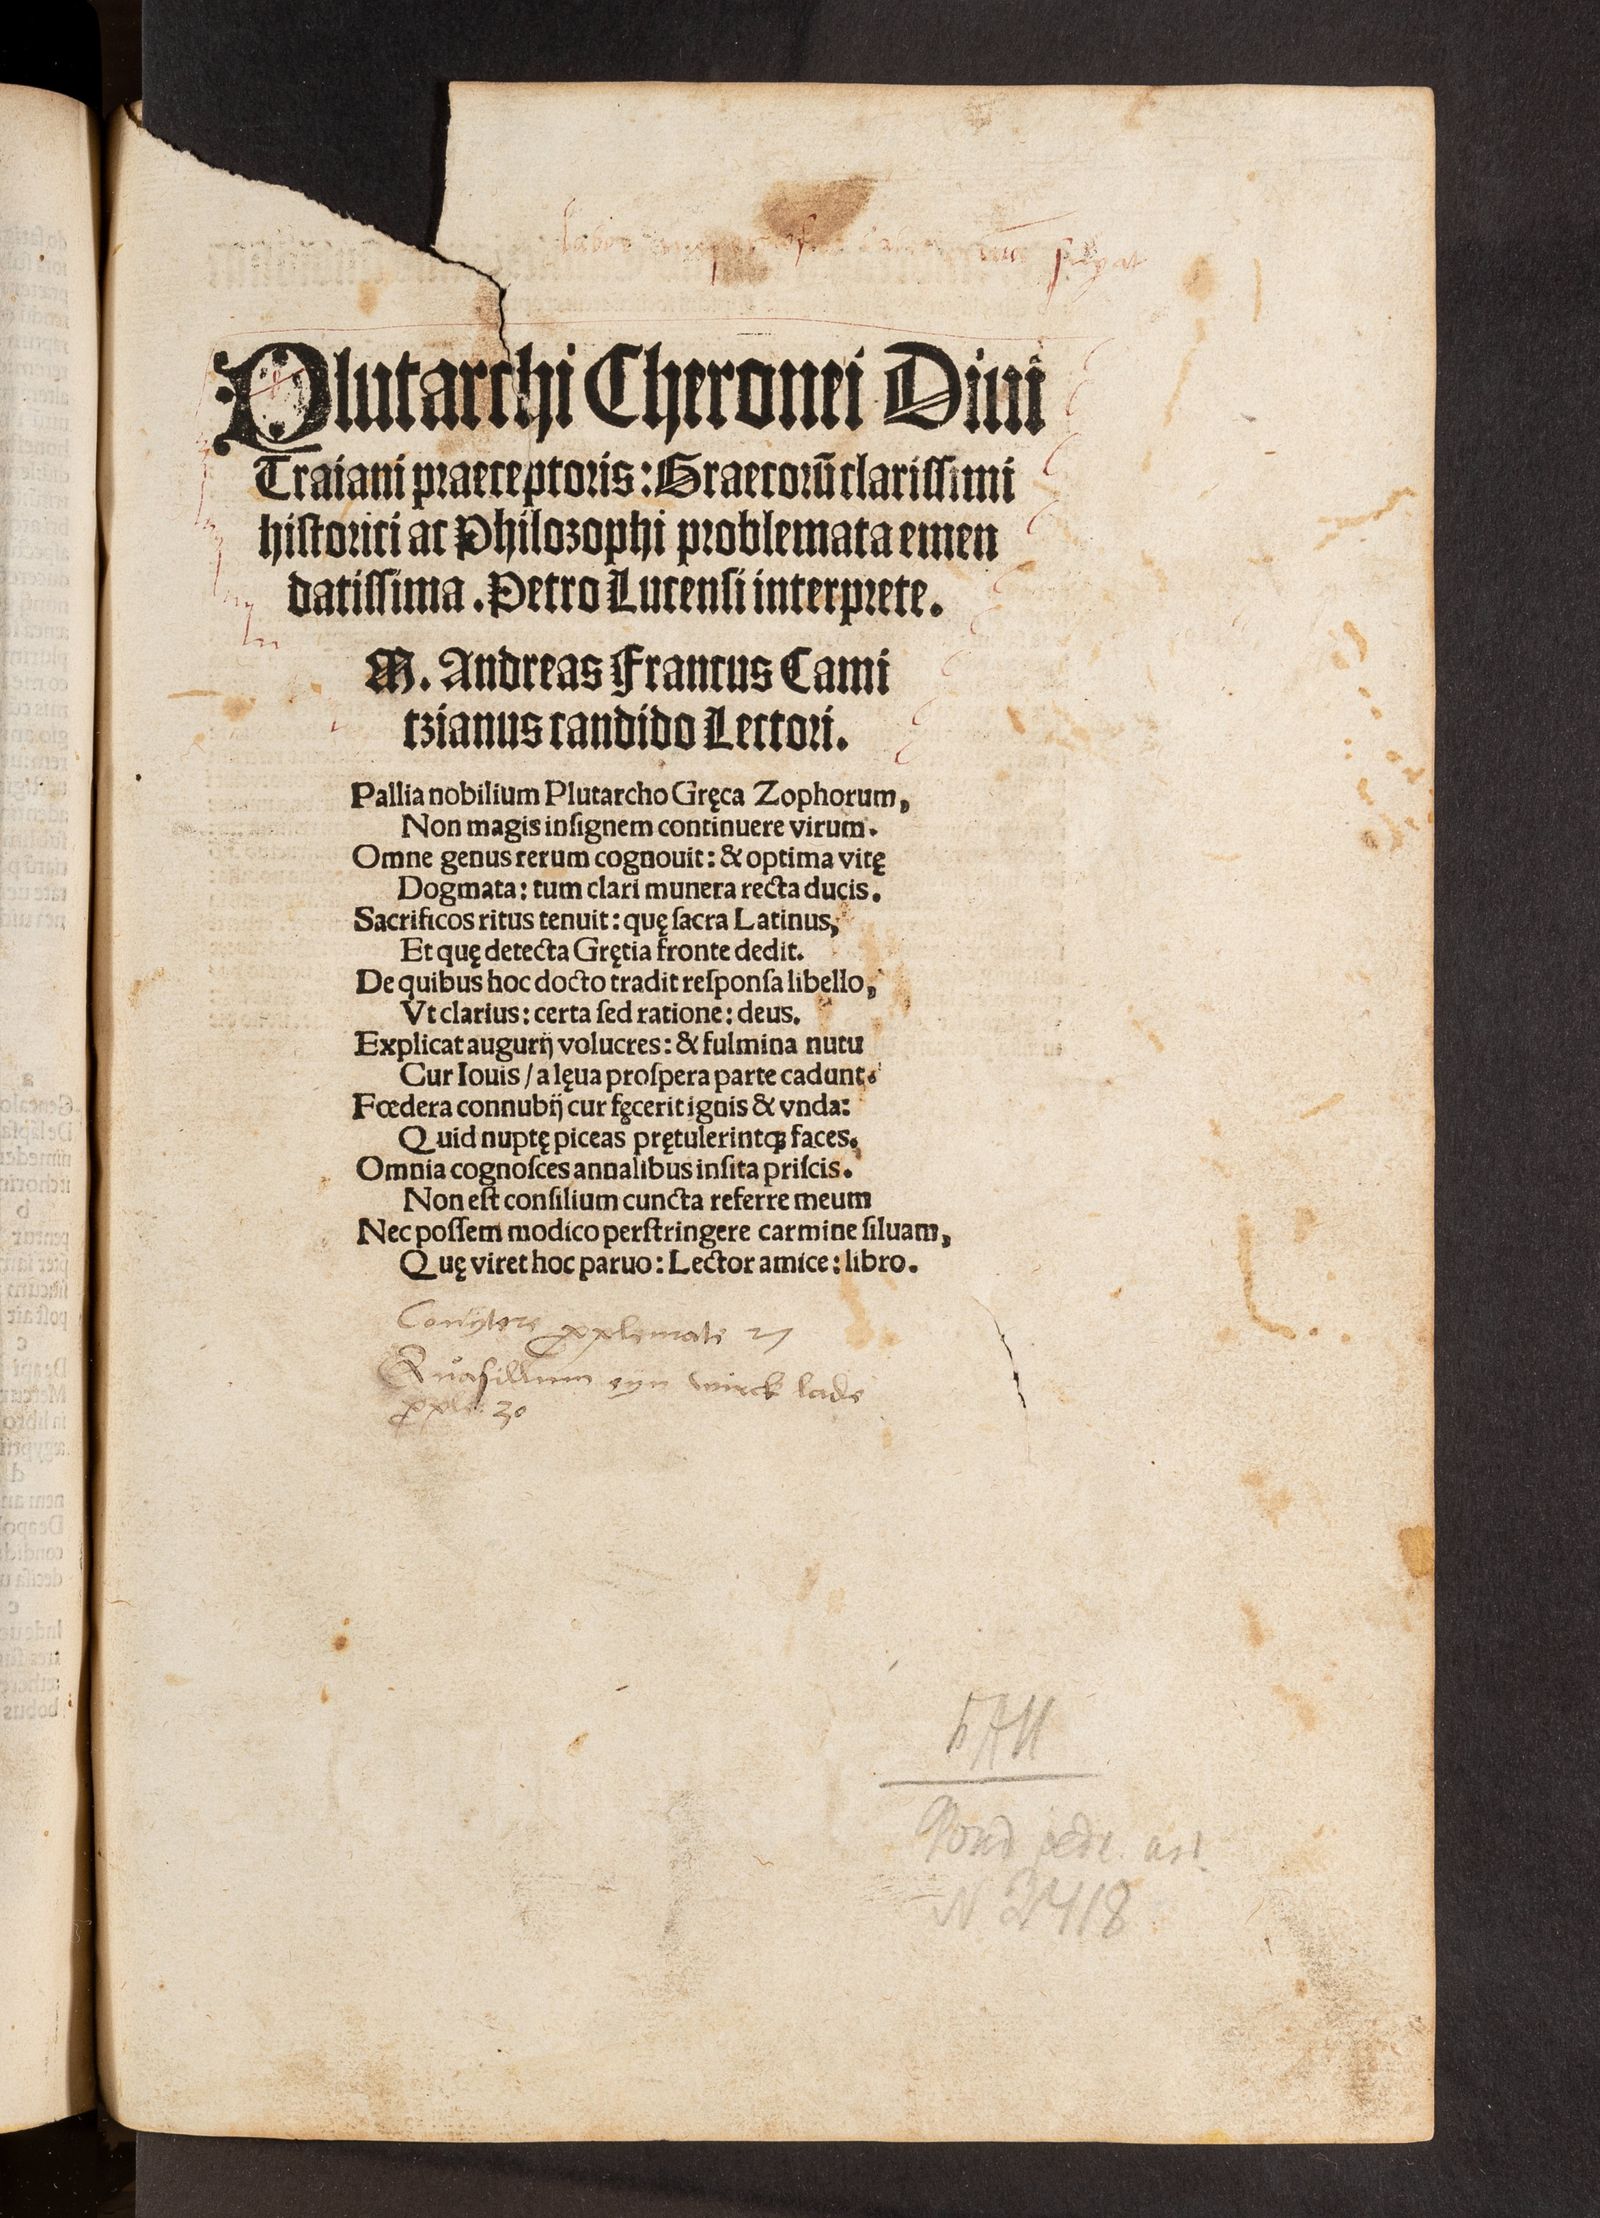 labor
Plutarchi Cheronei Diui
Traiani praeceptoris: Graecorū clarissimi
historici ac Philozophi problemata emen
datissima. Petro Lucensi interprete.
M. Andreas Francus Cami
tzianus candido Lectori.
Pallia nobilium Plutarcho Gręca Zophorum,
Non magis insignem continuere virum.
Omne genus rerum cognouit: & optima vitę
Dogmata: tum clari munera recta ducis.
Sacrificos ritus tenuit: quę sacra Latinus,
Et quę detecta Gręcia fronte dedit.
De quibus hoc docto tradit responsa libello,
Vt clarius: certa sed ratione: deus.
Explicat augurij volucres: & fulmina nutu
Cur Iouis / a lęua prospera parte cadunt.
Fœdera connubij cur fęcerit ignis & vnda:
Quid nuptę piceas prętulerintꝗ faces.
Omnia cognosces annalibus insita priscis.
Non est consilium cuncta referre meum
Nec possem modico perstringere carmine siluam,
Quę viret hoc paruo: Lector amice: libro.
27
Quasillum eyn wirck lade
30
N 2418